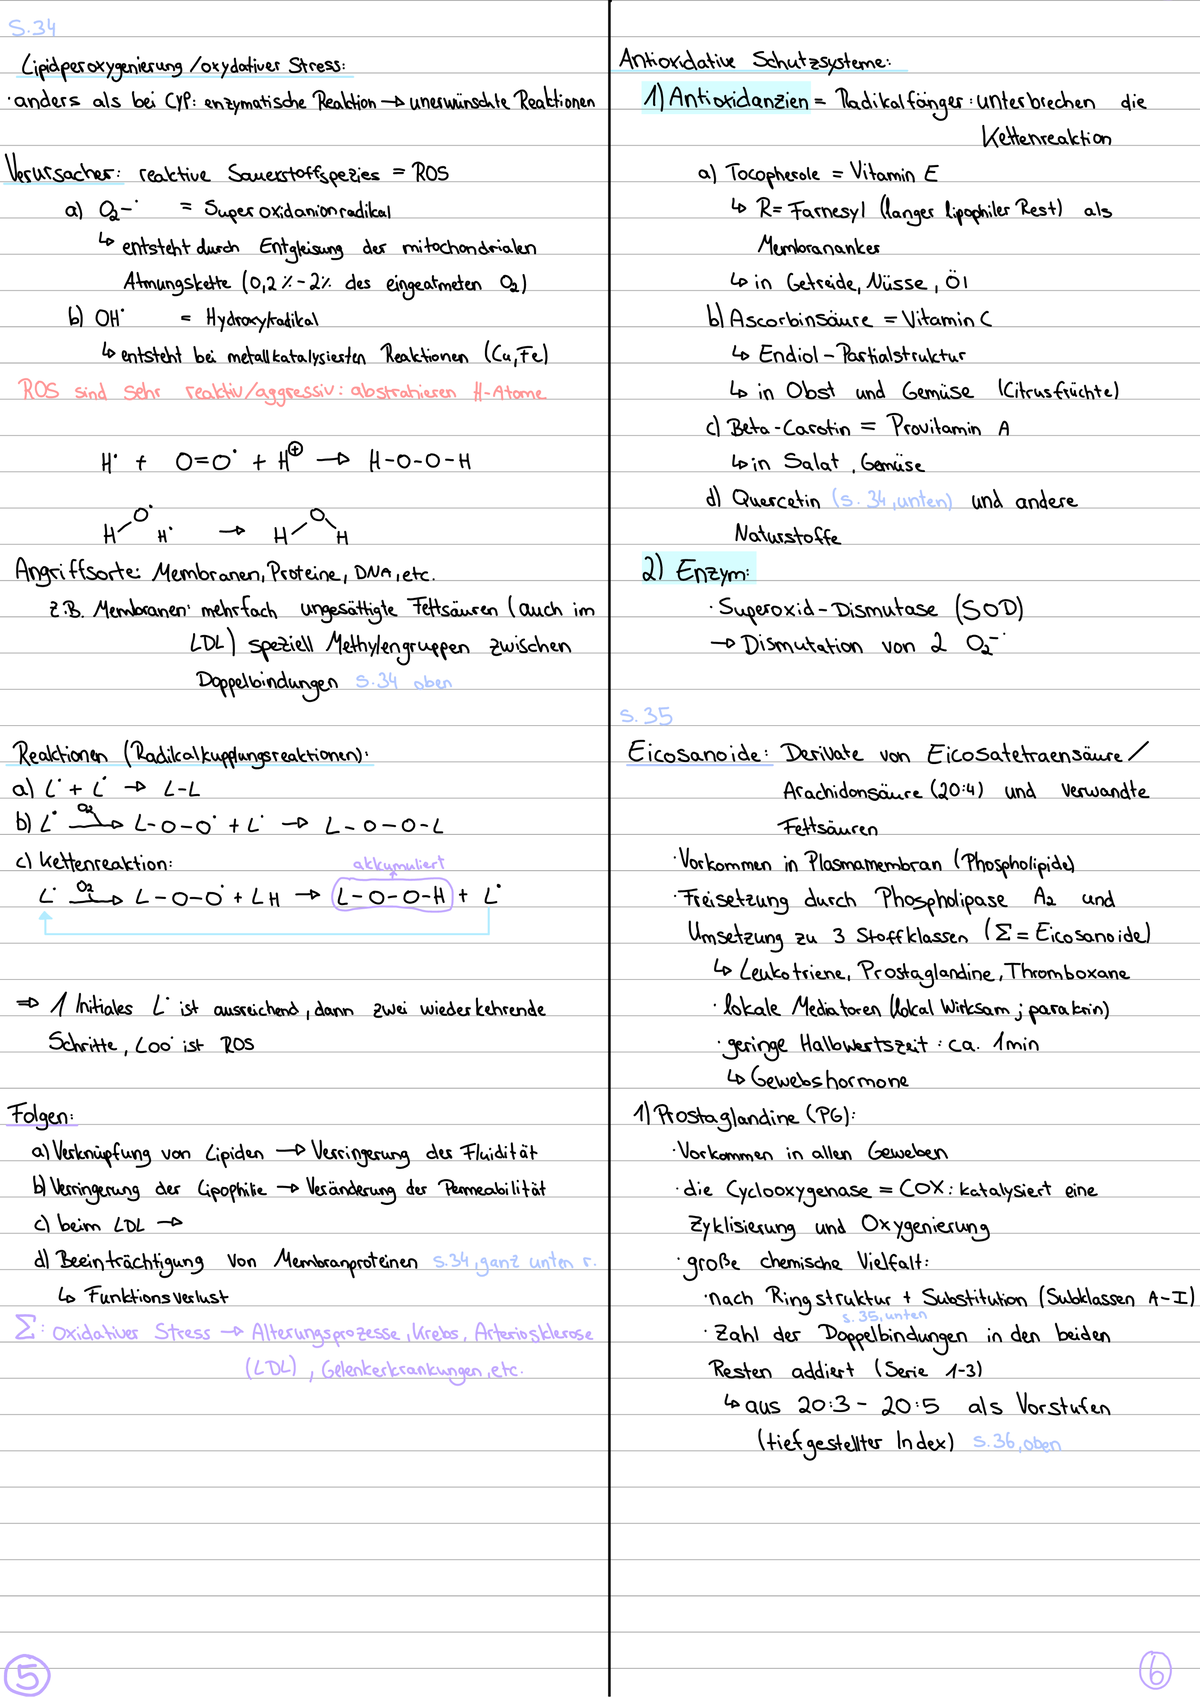 S.34
Lipidperoxygenierung / oxydativer Stress:
· anders als bei CYP: enzymatische Reaktion → unerwünschte Reaktionen
Verursacher: reaktive Sauerstoffspezies = ROS
a) O₂⁻˙ = Superoxidanionradikal
↳ entsteht durch Entgleisung der mitochondrialen
Atmungskette (0,2 % - 2% des eingeatmeten O₂)
b) OH˙ = Hydroxylradikal
↳ entsteht bei metallkatalysierten Reaktionen (Cu, Fe)
ROS sind sehr reaktiv/aggressiv: abstrahieren H-Atome
H˙ + O=O˙ + H⊕ → H-O-O-H
H-O˙ H˙ → H-O-H
Angriffsorte: Membranen, Proteine, DNA, etc.
z.B. Membranen: mehrfach ungesättigte Fettsäuren (auch im
LDL) speziell Methylengruppen zwischen
Doppelbindungen S.34 oben
Reaktionen (Radikalkupplungsreaktionen):
a) L˙ + L˙ → L-L
b) L˙ O₂→ L-O-O˙ + L˙ → L-O-O-L
c) Kettenreaktion: akkumuliert
L˙ O₂→ L-O-O˙ + LH → L-O-O-H + L˙
⇒ 1 Initiales L˙ ist ausreichend, dann zwei wiederkehrende
Schritte, LOO˙ ist ROS
Folgen:
a) Verknüpfung von Lipiden → Verringerung der Fluidität
b) Verringerung der Lipophilie → Veränderung der Permeabilität
c) beim LDL →
d) Beeinträchtigung von Membranproteinen S.34, ganz unten r.
↳ Funktionsverlust
Σ: Oxidativer Stress → Alterungsprozesse, Krebs, Arteriosklerose
(LDL), Gelenkerkrankungen, etc.
5
Antioxidative Schutzsysteme:
1) Antioxidanzien = Radikalfänger: unterbrechen die
Kettenreaktion
a) Tocopherole = Vitamin E
↳ R= Farnesyl (langer lipophiler Rest) als
Membrananker
↳ in Getreide, Nüsse, Öl
b) Ascorbinsäure = Vitamin C
↳ Endiol-Partialstruktur
↳ in Obst und Gemüse (Citrusfrüchte)
c) Beta-Carotin = Provitamin A
↳ in Salat, Gemüse
d) Quercetin (S. 34, unten) und andere
Naturstoffe
2) Enzym:
· Superoxid-Dismutase (SOD)
→ Dismutation von 2 O₂⁻˙
S. 35
Eicosanoide: Derivate von Eicosatetraensäure /
Arachidonsäure (20:4) und verwandte
Fettsäuren
· Vorkommen in Plasmamembran (Phospholipide)
· Freisetzung durch Phospholipase A₂ und
Umsetzung zu 3 Stoffklassen (Σ = Eicosanoide)
↳ Leukotriene, Prostaglandine, Thromboxane
· lokale Mediatoren (lokal Wirksam; parakrin)
· geringe Halbwertszeit: ca. 1min
↳ Gewebshormone
1) Prostaglandine (PG):
· Vorkommen in allen Geweben
· die Cyclooxygenase = COX: katalysiert eine
Zyklisierung und Oxygenierung
· große chemische Vielfalt:
· nach Ringstruktur + Substitution (Subklassen A-I)
S. 35, unten
· Zahl der Doppelbindungen in den beiden
Resten addiert (Serie 1-3)
↳ aus 20:3 - 20:5 als Vorstufen
(tiefgestellter Index) S.36, oben
6